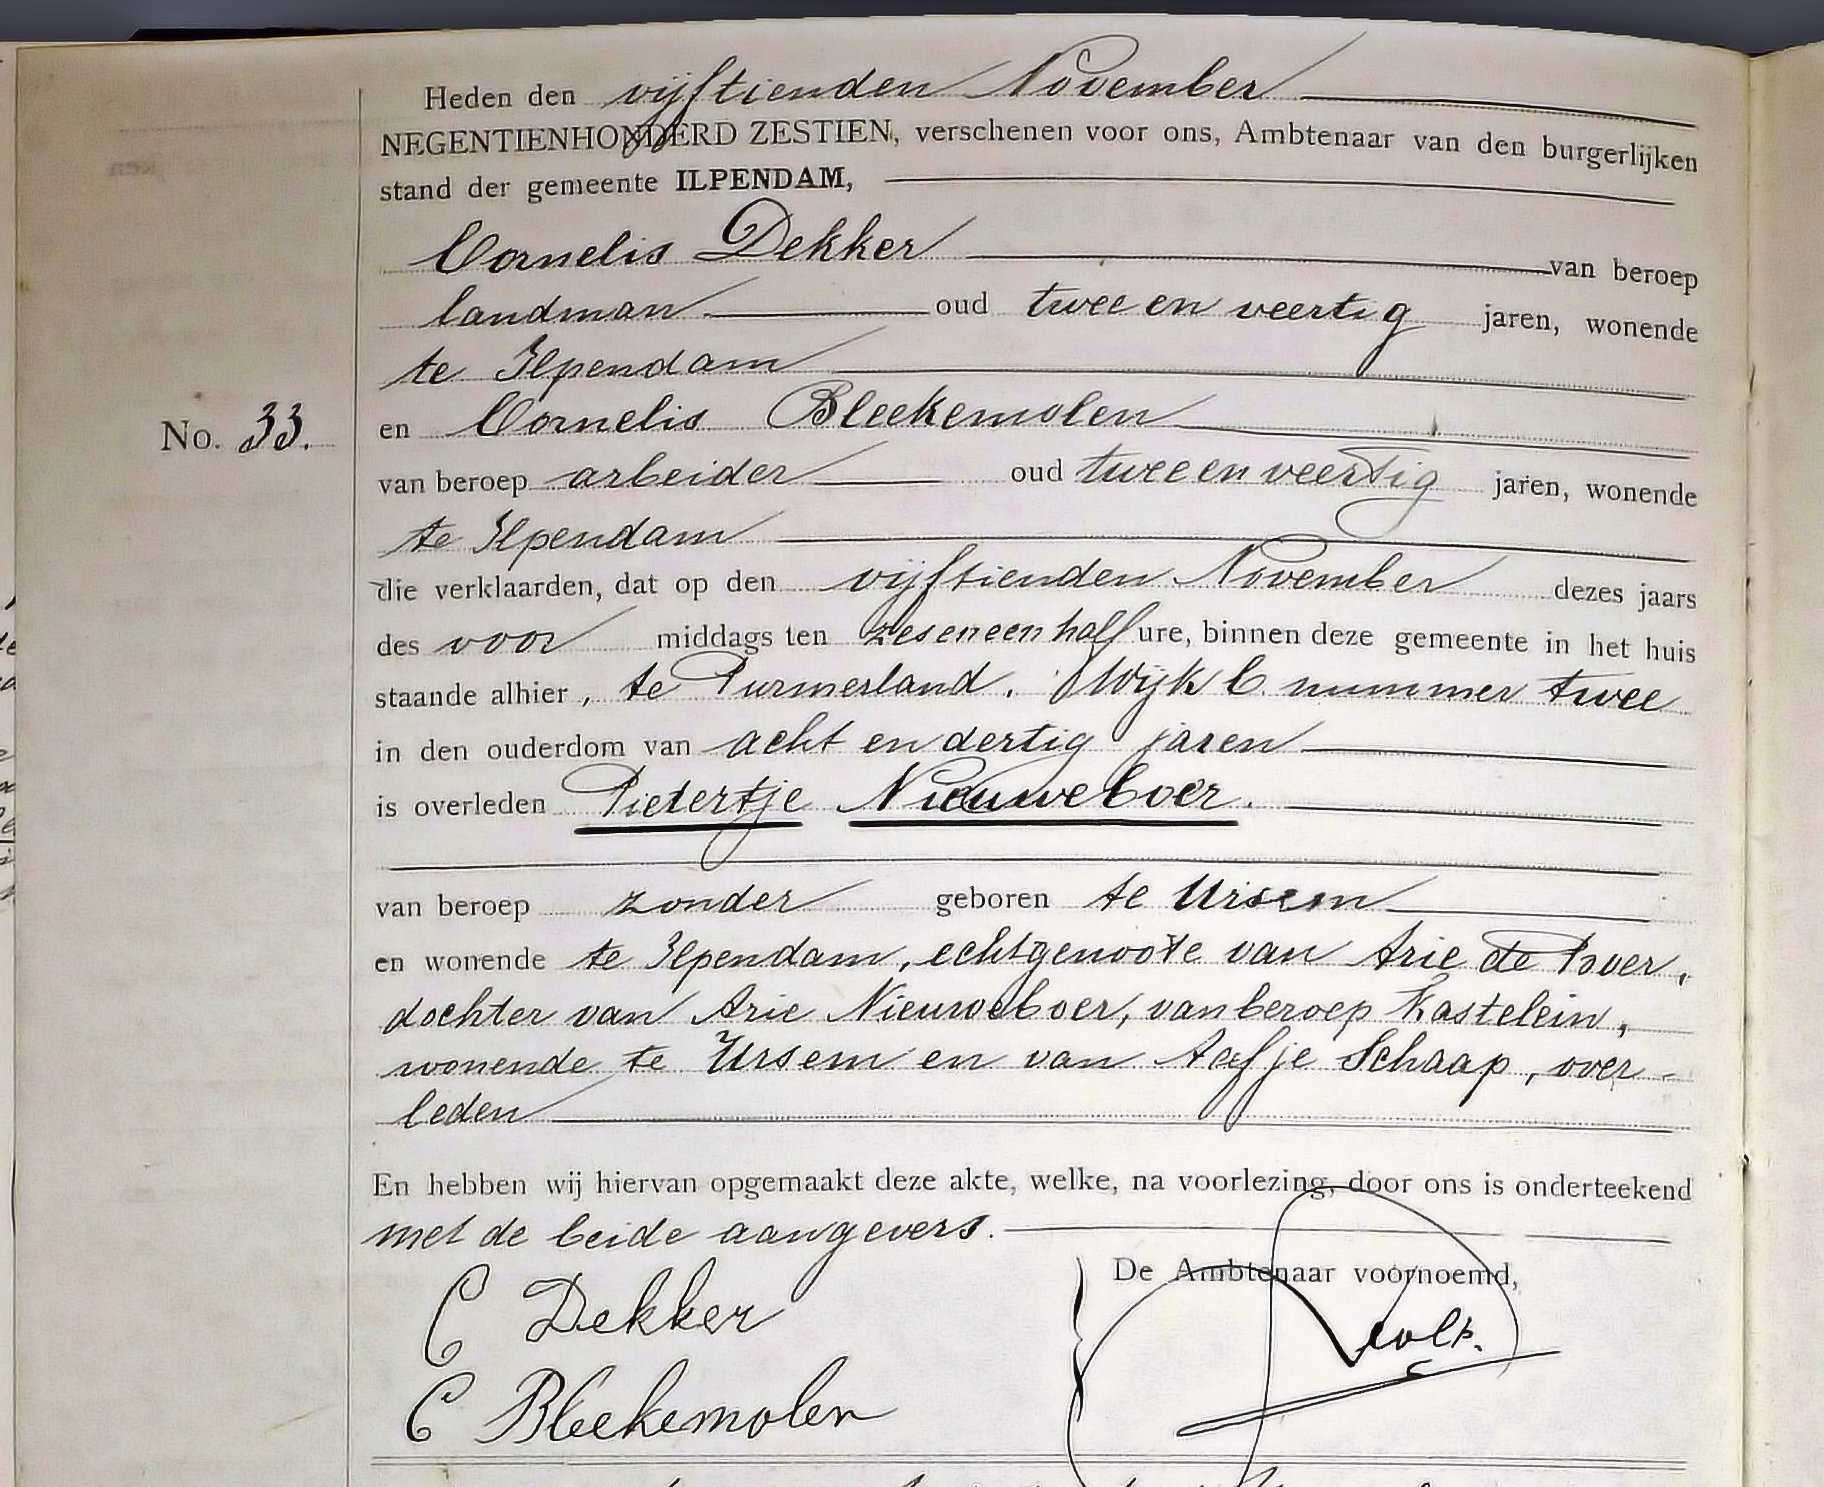 Heden den vijftienden November
NEGENTIENHONDERD ZESTIEN, verschenen voor ons, Ambtenaar van den burgerlijken
stand der gemeente ILPENDAM,
Cornelis Dekker van beroep
landman oud twee en veertig jaren, wonende
te Ilpendam
No. 33. en Cornelis Bleekemolen
van beroep arbeider oud twee en veertig jaren, wonende
te Ilpendam
die verklaarden, dat op den vijftienden November dezes jaars
des voor middags ten zes en een half ure, binnen deze gemeente in het huis
staande alhier, te Purmerland. Wijk C. nummer twee
in den ouderdom van acht en dertig jaren
is overleden Pietertje Nieuweboer.
van beroep zonder geboren te Ursem
en wonende te Ilpendam, echtgenoote van Arie de Boer,
dochter van Arie Nieuweboer, van beroep Kastelein,
wonende te Ursem en van Aafje Schaap, over-
leden
En hebben wij hiervan opgemaakt deze akte, welke, na voorlezing, door ons is onderteekend
met de beide aangevers.
De Ambtenaar voornoemd,
C Dekker
C Bleekemolen